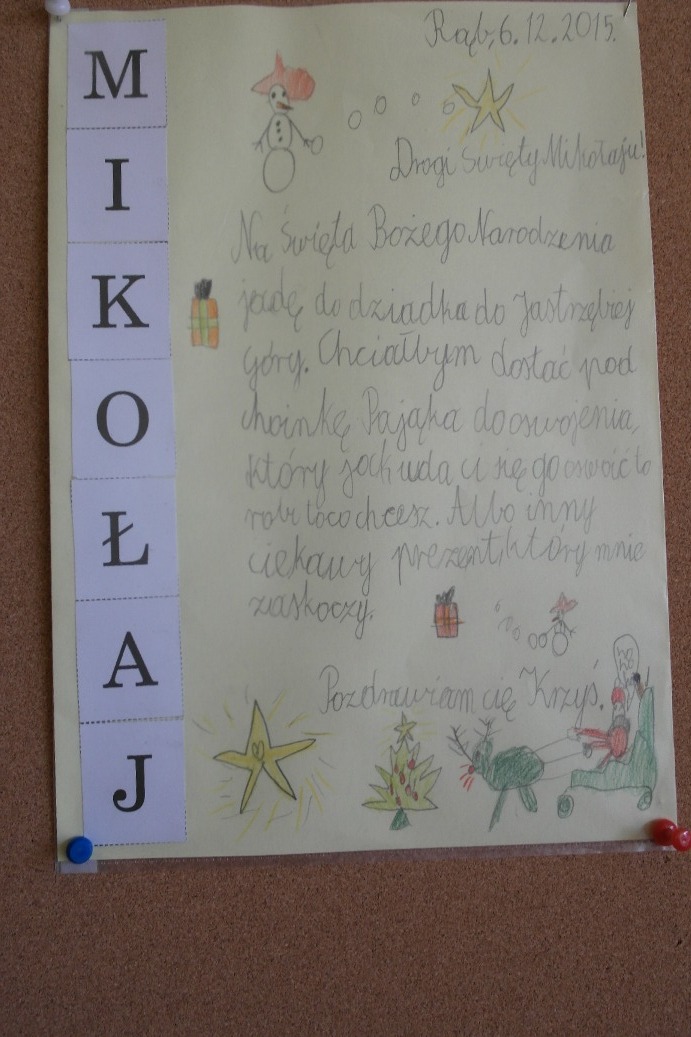 M
I
K
O
Ł
A
J
Rąb, 6.12.2015.
Drogi Święty Mikołaju!
Na Święta Bożego Narodzenia
jadę do dziadka do Jastrzębiej
góry. Chciałbym dostać pod
choinkę Pająka do oswojenia,
który jak uda ci się go oswoić to
robi to co chcesz. Albo inny
ciekawy prezent, który mnie
zaskoczy.
Pozdrawiam cię Krzyś.